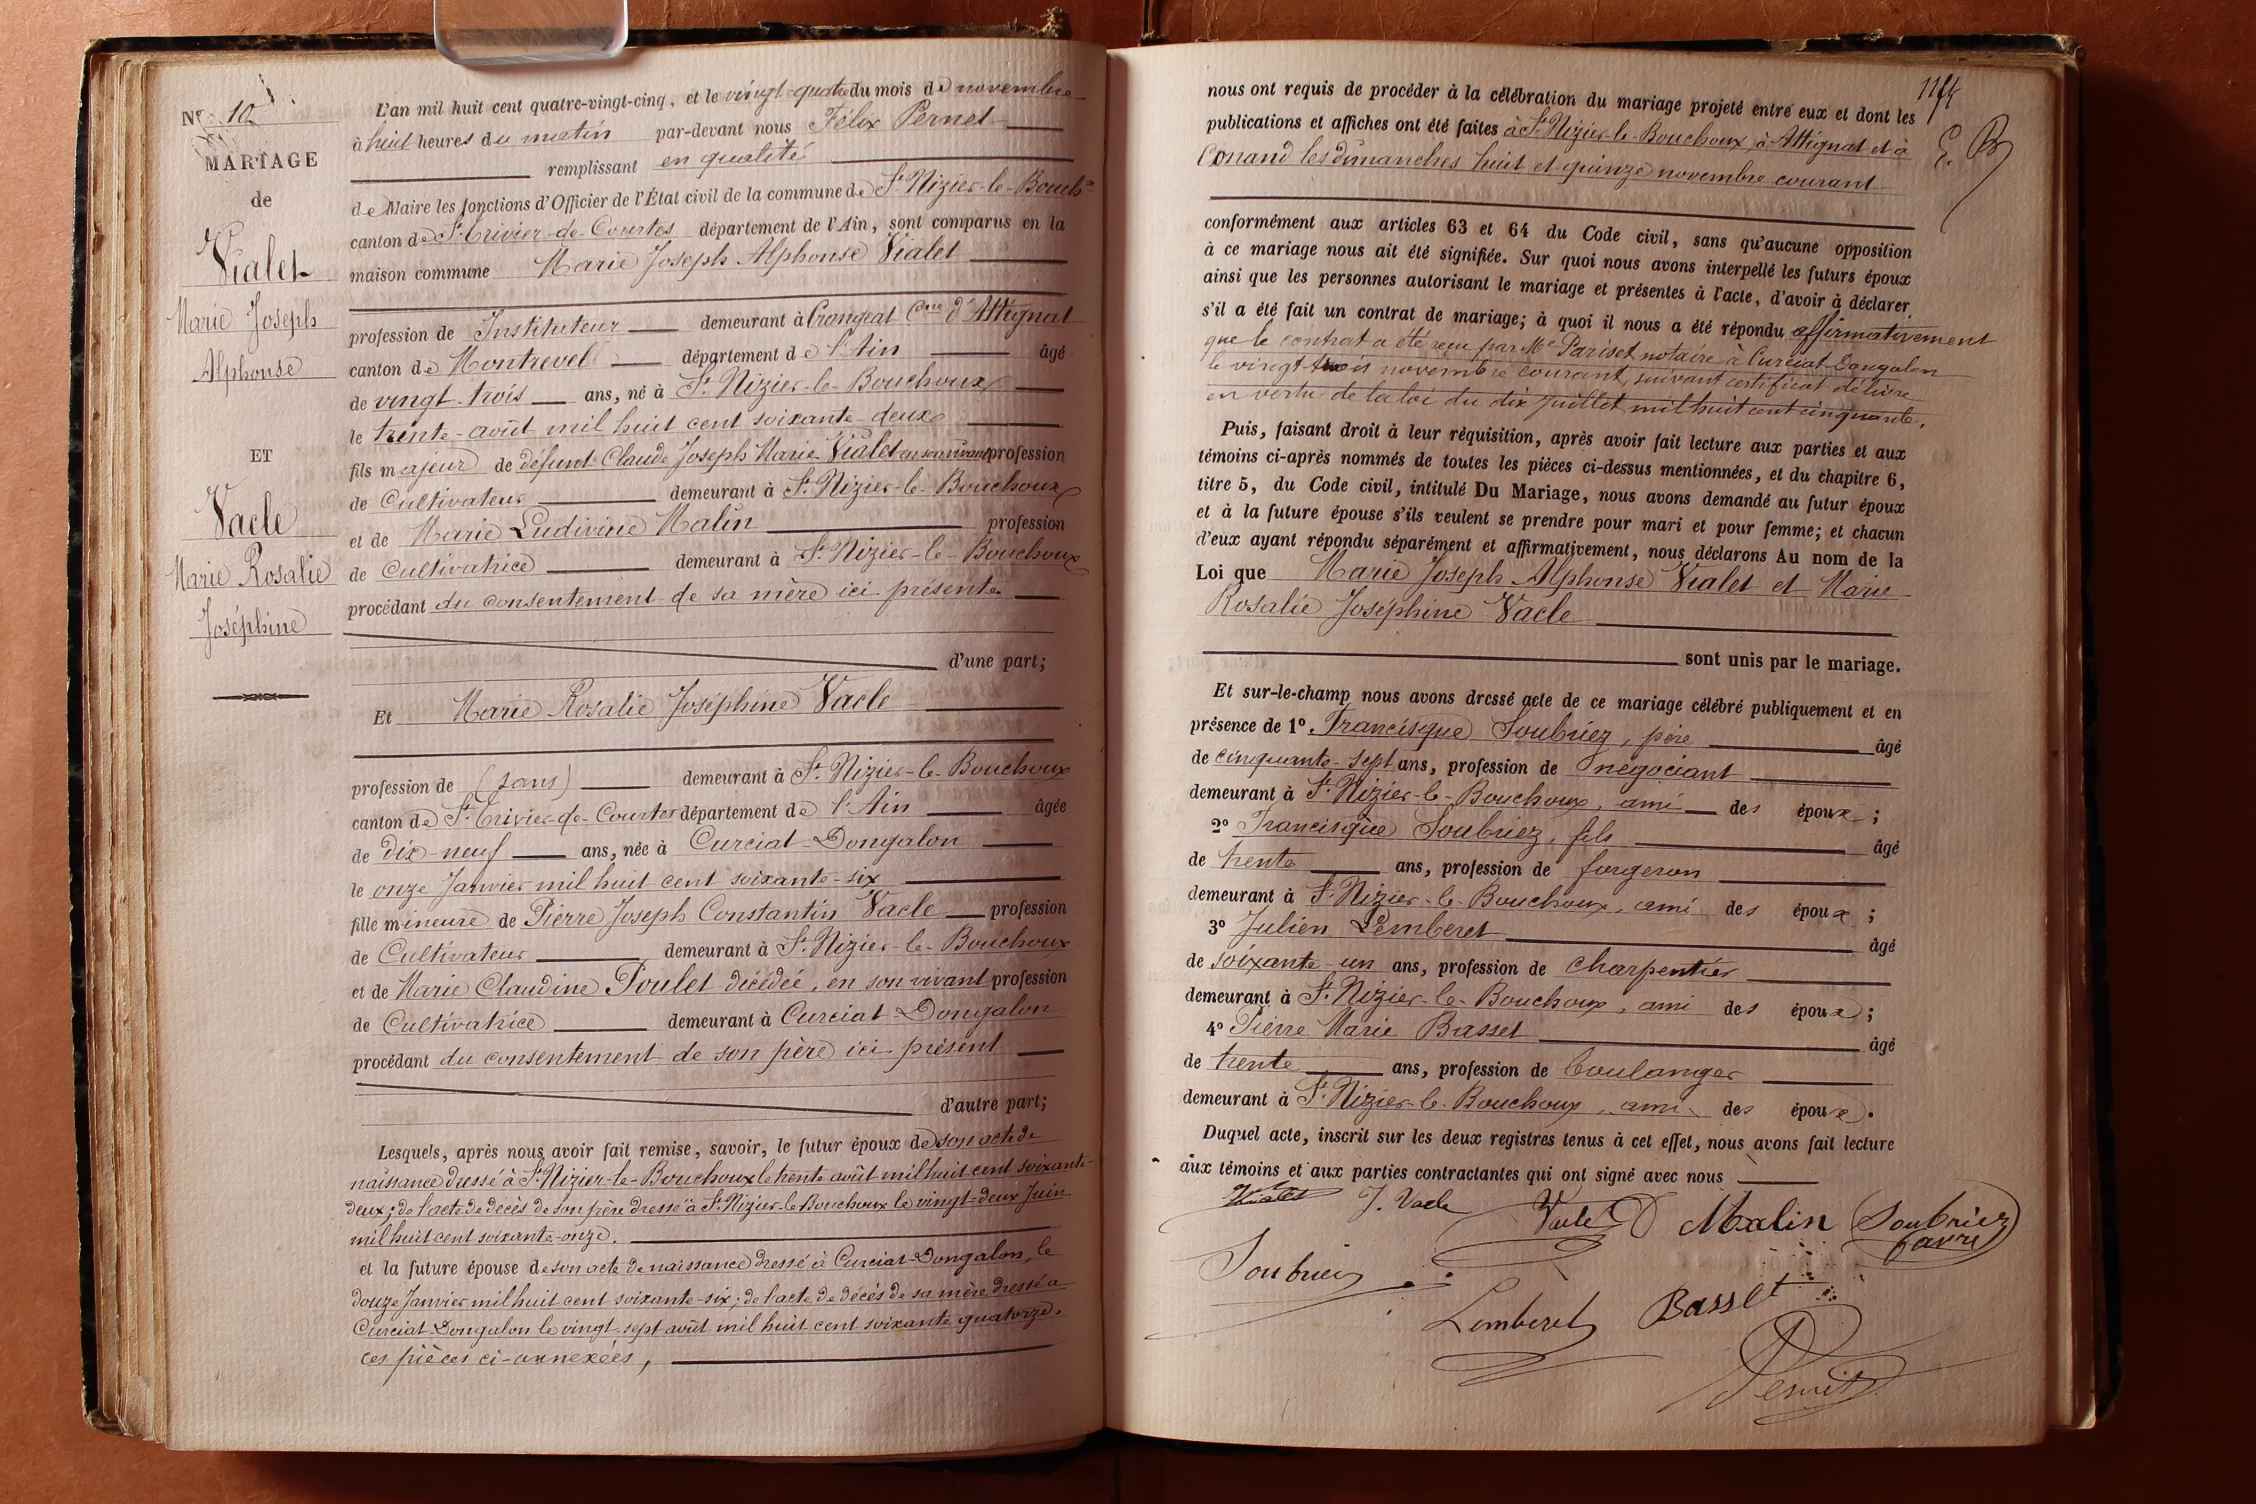 N° 10
MARIAGE
de
Vialet
Marie Joseph
Alphonse
ET
Vacle
Marie Rosalie
Joséphine
L'an mil huit cent quatre-vingt-cinq, et le vingt-quatre du mois de novembre
à huit heures du matin par-devant nous Félix Pernet
remplissant en qualité
de Maire les fonctions d'Officier de l'État civil de la commune de St Nizier-le-Bouchx
canton de St Trivier-de-Courtes département de l'Ain, sont comparus en la
maison commune Marie Joseph Alphonse Vialet
profession de Instituteur demeurant à Crangeat Cne d'Attignat
canton de Montrevel département de l'Ain âgé
de vingt-trois ans, né à St Nizier-le-Bouchoux
le trente-août mil huit cent soixante-deux
fils majeur de défunt Claude Joseph Marie Vialet en son vivant profession
de Cultivateur demeurant à St Nizier-le-Bouchoux
et de Marie Ludivine Malin profession
de Cultivatrice demeurant à St Nizier-le-Bouchoux
procédant du consentement de sa mère ici présente
d'une part;
Et Marie Rosalie Joséphine Vacle
profession de (sans) demeurant à St Nizier-le-Bouchoux
canton de St Trivier-de-Courtes département de l'Ain âgée
de dix-neuf ans, née à Curciat-Dongalon
le onze Janvier mil huit cent soixante-six
fille mineure de Pierre Joseph Constantin Vacle profession
de Cultivateur demeurant à St Nizier-le-Bouchoux
et de Marie Claudine Poulet décédée, en son vivant profession
de Cultivatrice demeurant à Curciat-Dongalon
procédant du consentement de son père ici présent
d'autre part;
Lesquels, après nous avoir fait remise, savoir, le futur époux de son acte de
naissance dressé à St Nizier-le-Bouchoux le trente août mil huit cent soixante-
deux; de l'acte de décès de son père dressé à St Nizier-le-Bouchoux le vingt-deux Juin
mil huit cent soixante-onze.
et la future épouse de son acte de naissance dressé à Curciat-Dongalon, le
douze Janvier mil huit cent soixante-six; de l'acte de décès de sa mère dressé à
Curciat-Dongalon le vingt-sept août mil huit cent soixante quatorze.
ces pièces ci-annexées,
114
nous ont requis de procéder à la célébration du mariage projeté entre eux et dont les
publications et affiches ont été faites à St Nizier-le-Bouchoux, à Attignat et à
Conand les dimanches huit et quinze novembre courant
conformément aux articles 63 et 64 du Code civil, sans qu'aucune opposition
à ce mariage nous ait été signifiée. Sur quoi nous avons interpellé les futurs époux
ainsi que les personnes autorisant le mariage et présentes à l'acte, d'avoir à déclarer
s'il a été fait un contrat de mariage; à quoi il nous a été répondu affirmativement
que le contrat a été reçu par Me Pariset notaire à Curciat-Dongalon
le vingt-trois novembre courant, suivant certificat délivré
en vertu de la loi du dix juillet mil huit cent cinquante.
Puis, faisant droit à leur réquisition, après avoir fait lecture aux parties et aux
témoins ci-après nommés de toutes les pièces ci-dessus mentionnées, et du chapitre 6,
titre 5, du Code civil, intitulé Du Mariage, nous avons demandé au futur époux
et à la future épouse s'ils veulent se prendre pour mari et pour femme; et chacun
d'eux ayant répondu séparément et affirmativement, nous déclarons Au nom de la
Loi que Marie Joseph Alphonse Vialet et Marie
Rosalie Joséphine Vacle
sont unis par le mariage.
Et sur-le-champ nous avons dressé acte de ce mariage célébré publiquement et en
présence de 1° Francisque Soubriez, père âgé
de cinquante-sept ans, profession de négociant
demeurant à St Nizier-le-Bouchoux, ami des époux;
2° Francisque Soubriez, fils âgé
de trente ans, profession de forgeron
demeurant à St Nizier-le-Bouchoux, ami des époux;
3° Julien Lemberet âgé
de soixante-un ans, profession de charpentier
demeurant à St Nizier-le-Bouchoux, ami des époux;
4° Pierre Marie Basset âgé
de trente ans, profession de boulanger
demeurant à St Nizier-le-Bouchoux, ami des époux.
Duquel acte, inscrit sur les deux registres tenus à cet effet, nous avons fait lecture
aux témoins et aux parties contractantes qui ont signé avec nous
Vialet J. Vacle Vacle Malin Soubriez
Soubriez
Lemberet Basset
Pernet